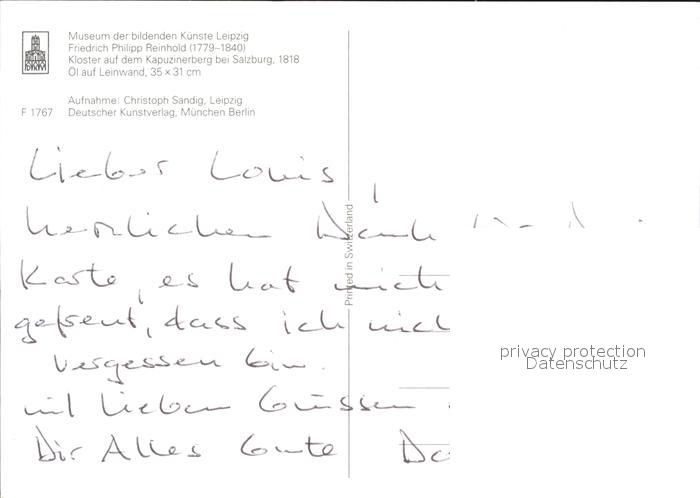 Museum der bildenden Künste Leipzig
Friedrich Philipp Reinhold (1779–1840)
Kloster auf dem Kapuzinerberg bei Salzburg, 1818
Öl auf Leinwand, 35 × 31 cm
Aufnahme: Christoph Sandig, Leipzig
F 1767 Deutscher Kunstverlag, München Berlin
Lieber Louis,
herzlichen Dank
Karte, es hat mich
gefreut, dass ich nicht
vergessen bin.
mit lieben Grüssen
Dir Alles Gute
Printed in Switzerland
privacy protection
Datenschutz